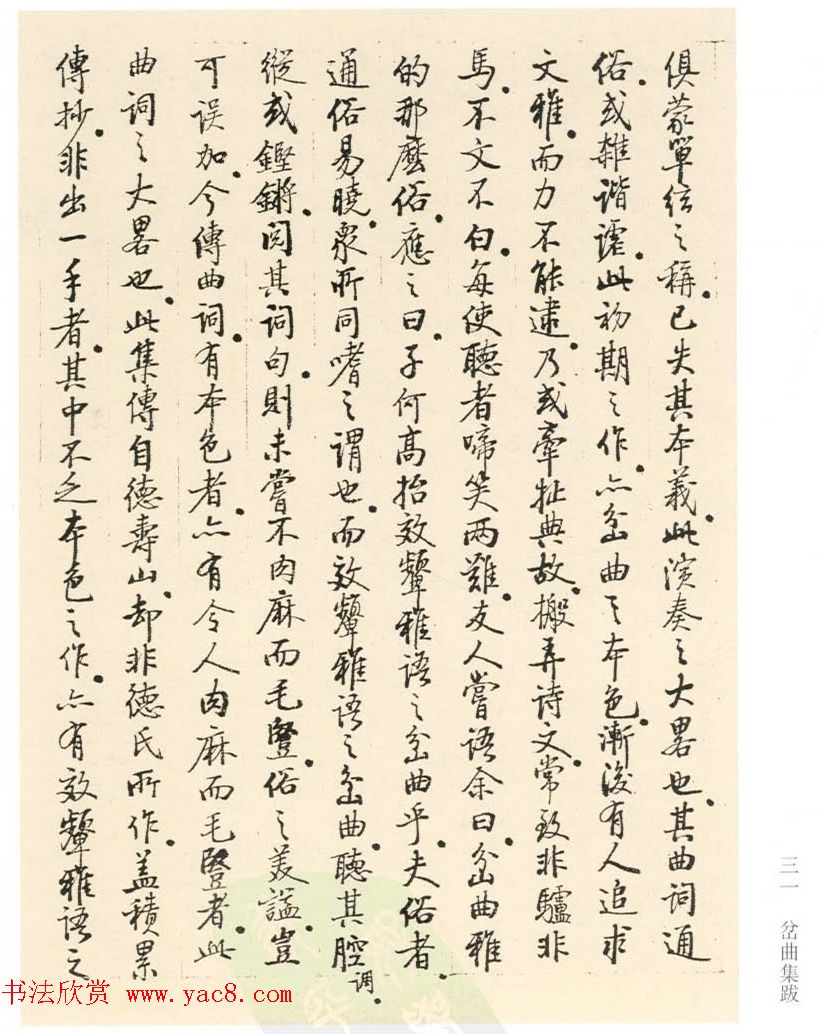 俱蒙單弦之稱。已失其本義。此演奏之大畧也。其曲詞通
俗。或雜諧謔。此初期之作。亦岔曲之本色。漸後有人追求
文雅。而力不能逮。乃或牽扯典故。搬弄诗文。常致非驢非
馬。不文不白。每使聽者啼笑两難。友人嘗語余曰。岔曲雅
的那麼俗。應之曰。子何高抬效顰雅语之岔曲乎。夫俗者。
通俗易曉。眾所同嗜之謂也。而效顰雅语之岔曲。聽其腔调。
縱或鏗鏘。閲其词句。則未嘗不肉麻而毛豎。俗之美謚。豈
可误加。今傳曲詞。有本色者。亦有令人肉麻而毛豎者。此
曲词之大畧也。此集傳自德壽山。却非德氏所作。盖積累
傳抄。非出一手者。其中不乏本色之作。亦有效顰雅语之
三一 岔曲集跋
书法欣赏 www.yac8.com